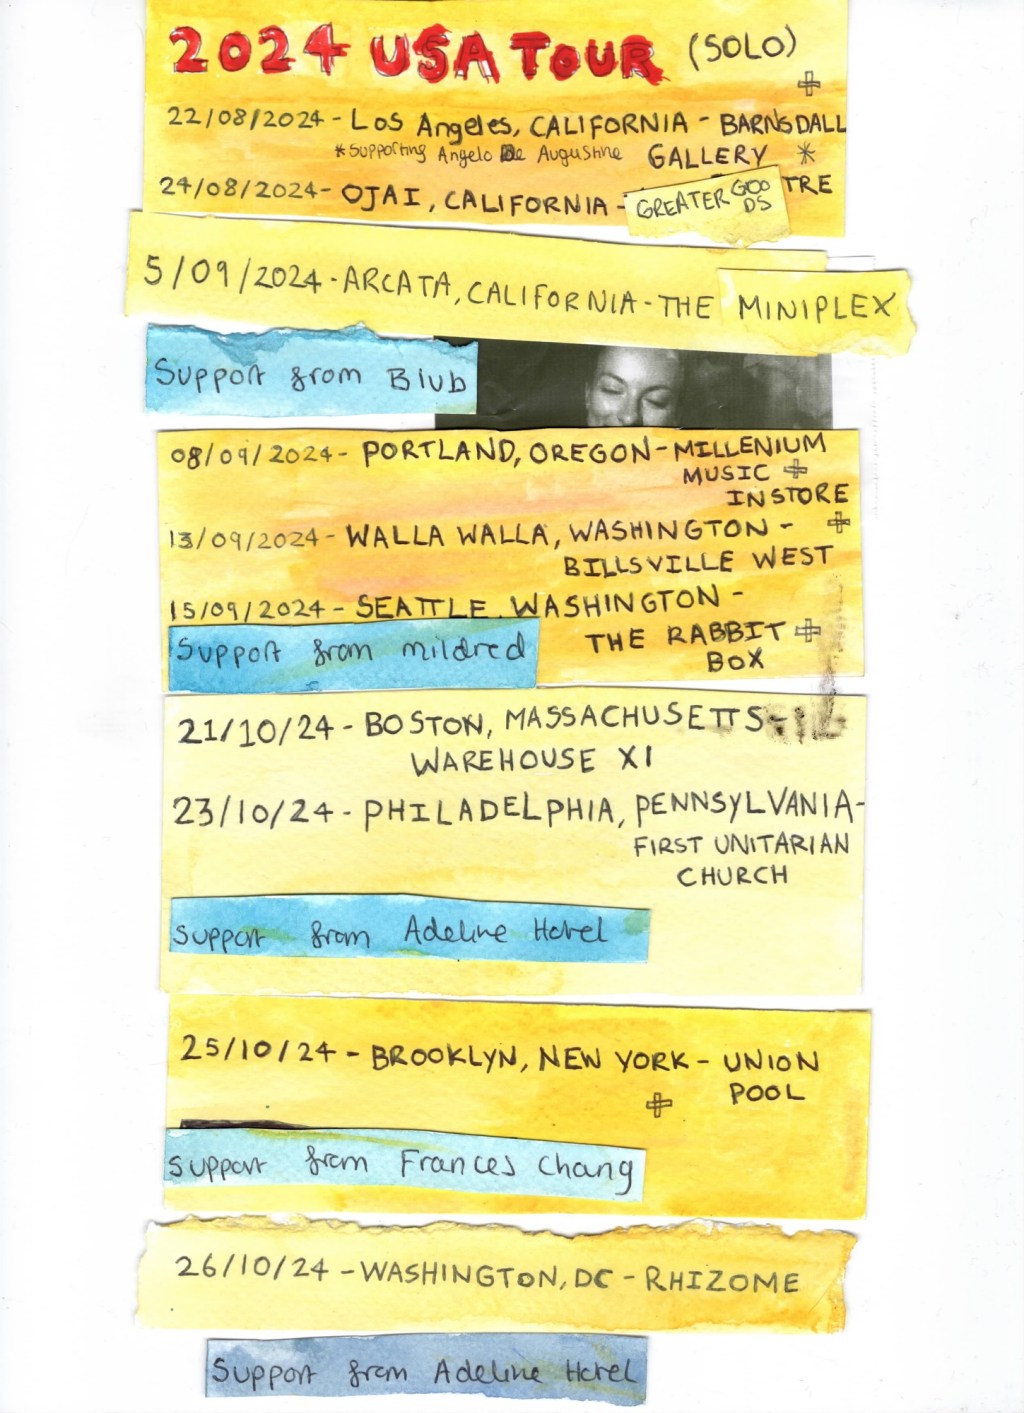 2024 USA TOUR (SOLO)
22/08/2024 - Los Angeles, CALIFORNIA - BARNSDALL
*Supporting Angelo De Augustine GALLERY *
24/08/2024 - OJAI, CALIFORNIA - GREATER GOO
DS TRE
5/09/2024 - ARCATA, CALIFORNIA - THE MINIPLEX
Support from Biub
08/09/2024 - PORTLAND, OREGON - MILLENIUM
MUSIC
INSTORE
13/09/2024 - WALLA WALLA, WASHINGTON -
BILLSVILLE WEST
15/09/2024 - SEATTLE, WASHINGTON -
THE RABBIT
BOX
Support from mildred
21/10/24 - BOSTON, MASSACHUSETTS -
WAREHOUSE XI
23/10/24 - PHILADELPHIA, PENNSYLVANIA -
FIRST UNITARIAN
CHURCH
Support from Adeline Hotel
25/10/24 - BROOKLYN, NEW YORK - UNION
POOL
Support from Frances Chang
26/10/24 - WASHINGTON, DC - RHIZOME
Support from Adeline Hotel